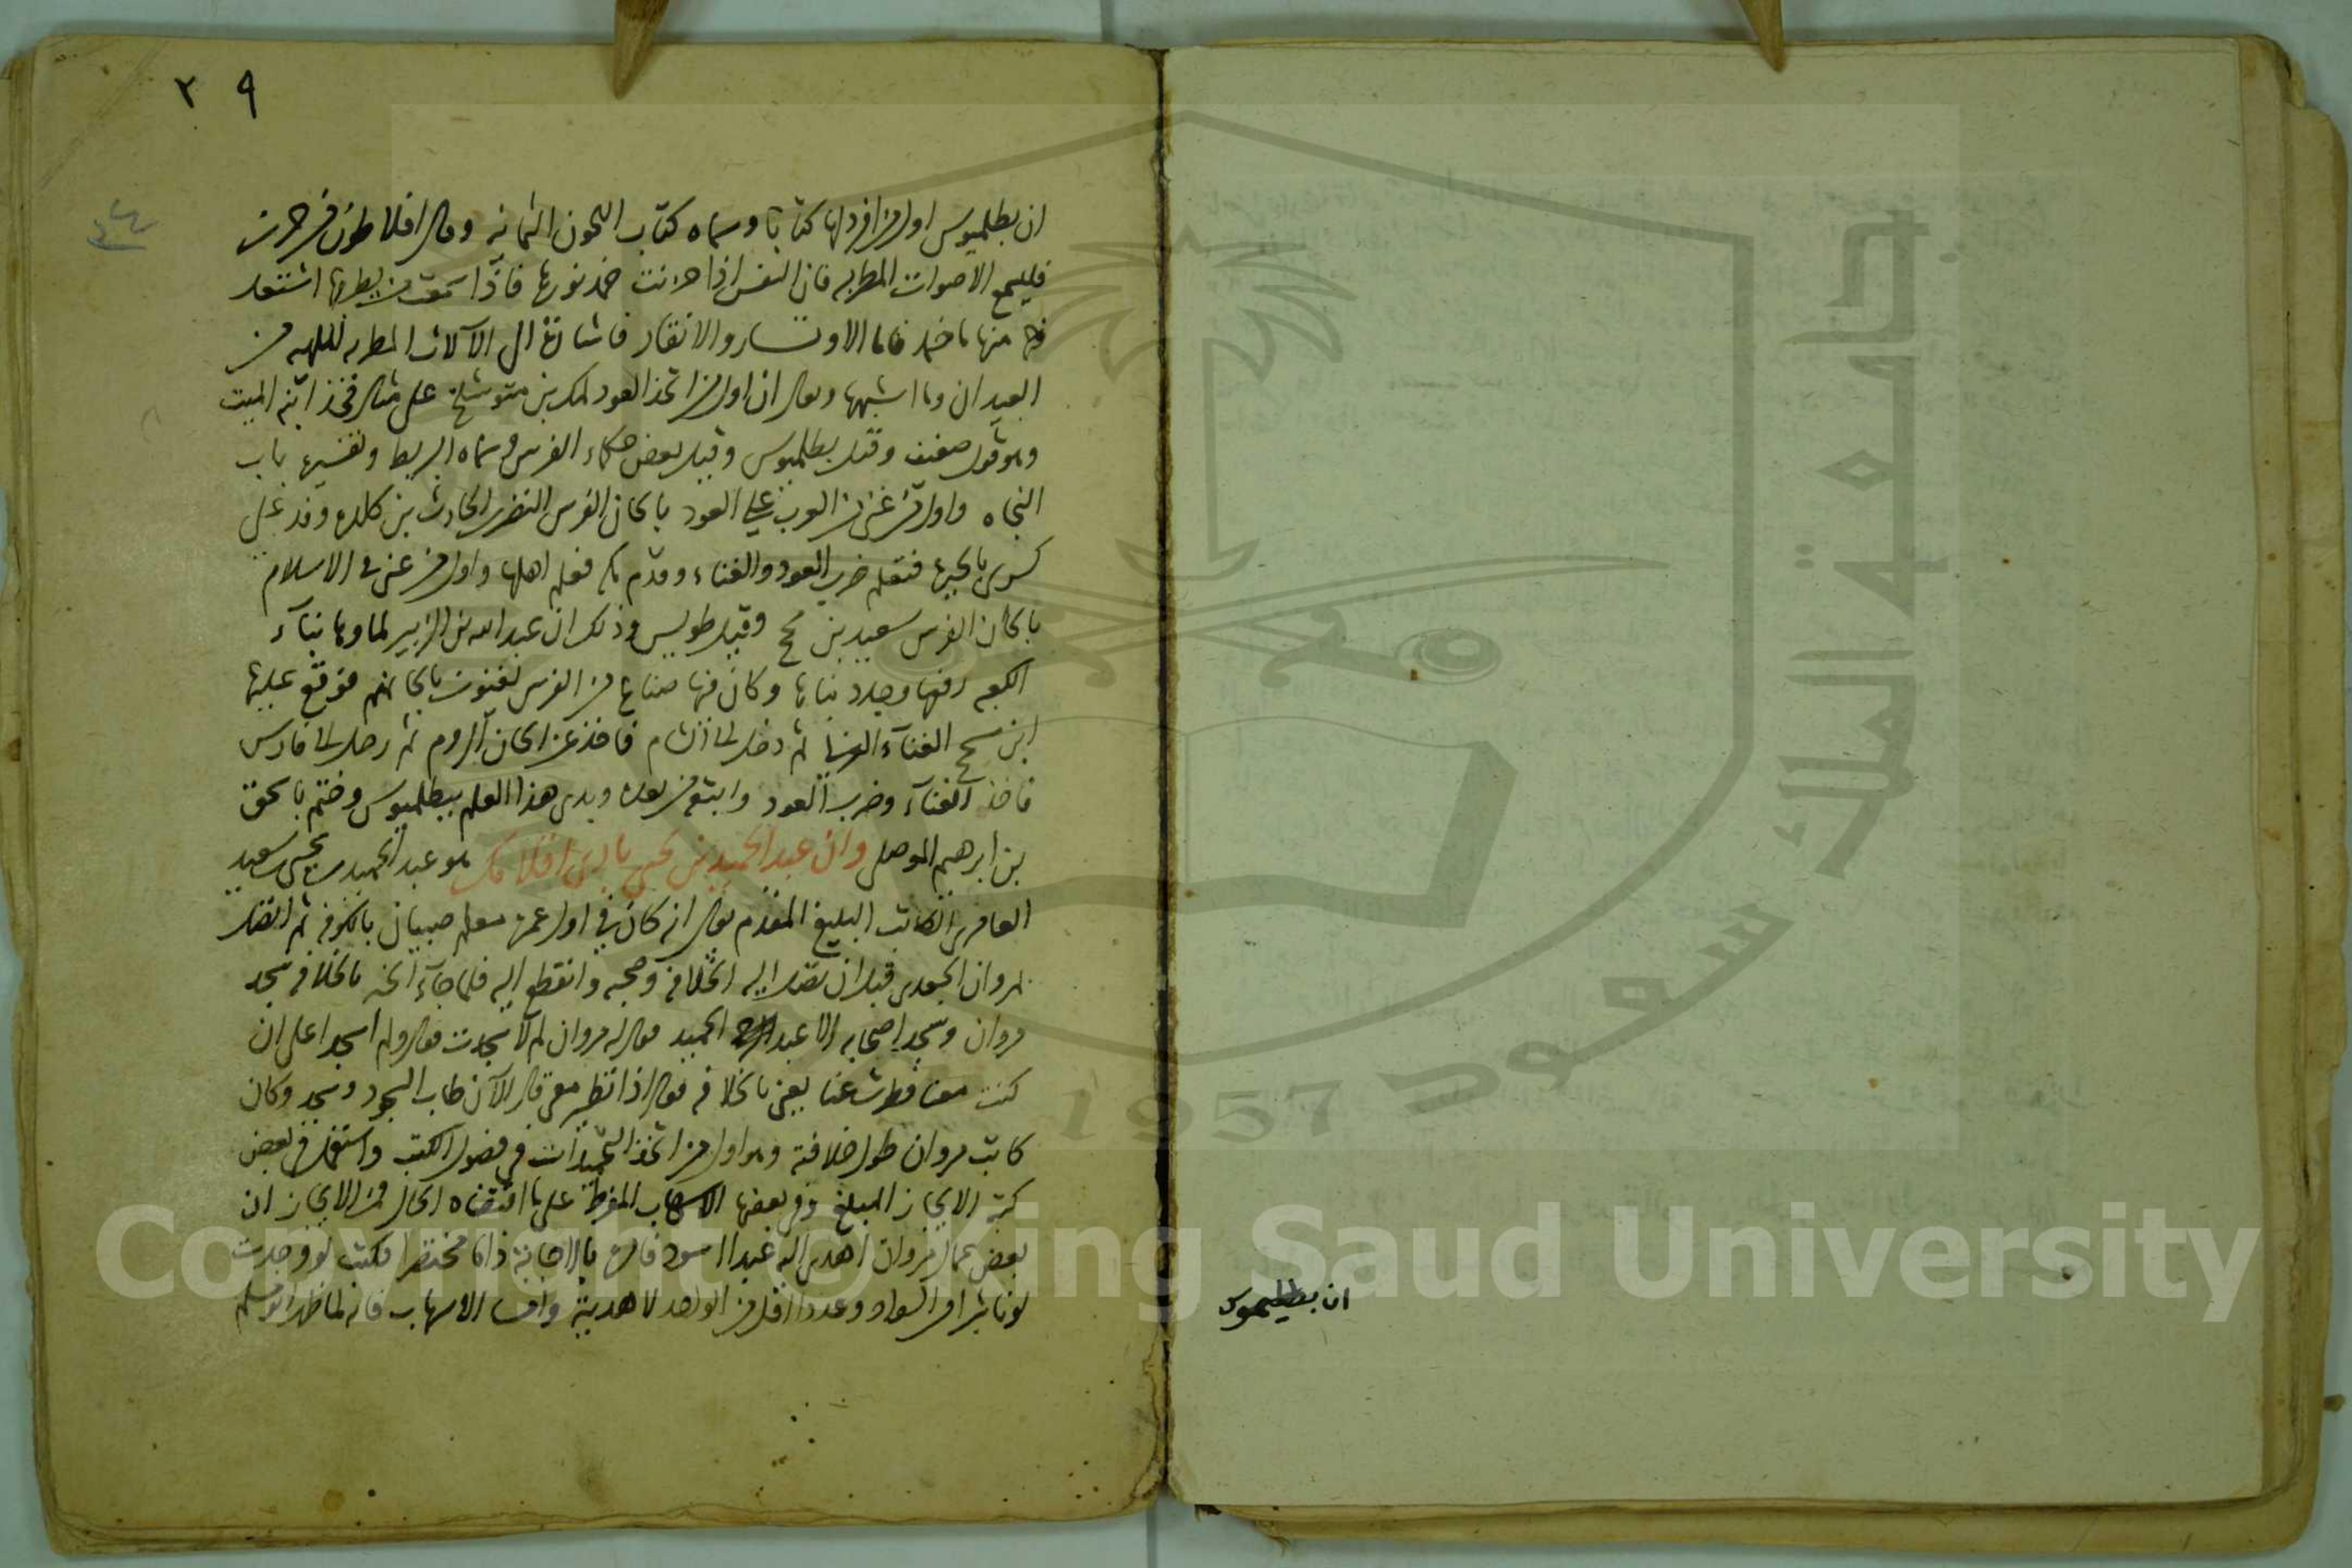 ان بطليموس
٢٩
ان بطلميوس اول من افرد لها كتابا وسماه كتاب اللحون الثمانيه وقال افلاطون من حزن
فليسمع الاصوات المطربه فان النفس اذا حزنت خمد نورها فاذا سمعت ما يطربها اشتعل
منها ما خمد فاما الاوتار والانقار فاشارة الى الآلات المطربه الملهيه من
العيدان وما اشبهها ويقال ان اول من اتخذ العود لمك بن متوشلخ على مثال فخذ ابنه الميت
وهو قول ضعيف وقيل بطلميوس وقيل بعض حكماء الفرس وسماه البربط وتفسيره باب
النجاه واول من غنى من العرب على العود بالحان الفرس النضر بن الحارث بن كلده وفد على
كسرى بالحيره فتعلم ضرب العود والغناء وقدم مكه فعلم اهلها واول من غنى في الاسلام
بالحان الفرس سعيد بن مسجح وقيل طويس وذلك ان عبد الله بن الزبير لما وها بناء
الكعبه رفعها وجدد بناها وكان فيها صناع من الفرس يغنون بالحانهم فوقع عليها
ابن مسجح الغنآء العربي ثم دخل الى الشام فاخذ عن الحان الروم ثم رحل الى فارس
فاخذ الغنآء وضرب العود واتبعه من بعده وبدى هذا العلم ببطلميوس وختم باسحق
بن ابرهيم الموصلي وان عبد الحميد بن يحيى بارى اقلامك هو عبد الحميد بن يحيى بن سعيد
العامري الكاتب البليغ المقدم يقال انه كان في اول عمره معلم صبيان بالكوفه ثم اتصل
بمروان الجعدي قبل ان تصل اليه الخلافه وصحبه وانقطع اليه فلما جآء الخبر بالخلافه سجد
مروان وسجد اصحابه الا عبد الحميد فقال له مروان لم لا سجدت فقال ولم اسجد اعلى ان
كنت معنا فطرت عنا يعني بالخلافه فقال اذا تطير معي قال الآن طاب السجود وسجد وكان
كاتب مروان طول خلافته وهو اول من اتخذ التحميدات في فصول الكتب واستعمل في بعض
كتبه الايجاز البليغ وفي بعضها الاسهاب المفرط على ما اقتضاه الحال فمن الايجاز ان
بعض عمال مروان اهدى اليه عبدا اسود فامره بالاجابة ذاما مختصرا فكتب لو وجدت
لونا شرا من السواد وعددا اقل من الواحد لاهديته واما الاسهاب فانه لما ظهر ابو مسلم